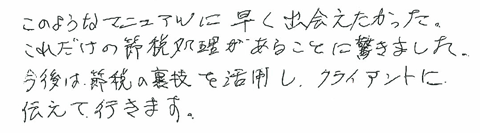 このようなマニュアルに早く出会えたかった。
これだけの節税処理があることに驚きました。
今後は節税の裏技を活用し、クライアントに
伝えて行きます。